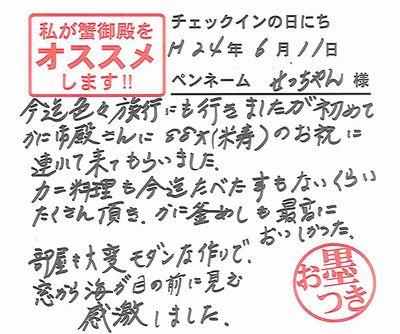 私が蟹御殿を
オススメ
します!!
チェックインの日にち
H24年6月11日
ペンネーム せっちゃん 様
今迄色々旅行にも行きましたが初めて
かに御殿さんに88才(米寿)のお祝に
連れて来てもらいました.
カニ料理も今迄たべたすもないくらい
たくさん頂き.かに釜めしも最高に
おいしかった.
部屋も大変モダンな作りで.
窓から海が目の前に見む
感激しました.
お墨
つき